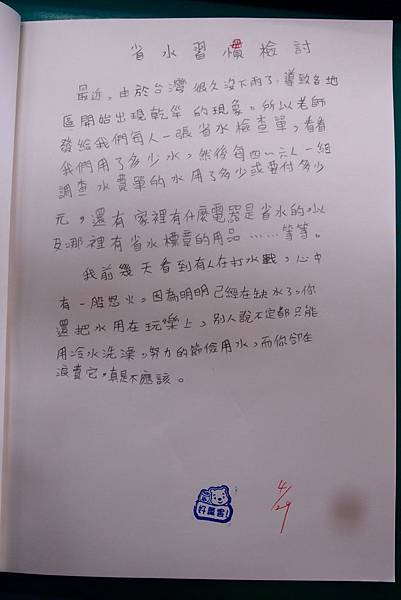 省水習慣檢討
最近，由於台灣很久沒下雨了，導致各地
區開始出現乾旱的現象。所以老師
發給我們每人一張省水檢查單，看看
我們用了多少水，然後每四～六人一組
調查水費單的水用了多少或要付多少
元，還有家裡有什麼電器是省水的以
及哪裡有省水標章的用品……等等。
我前幾天看到有人在打水戰，心中
有一股怒火，因為明明已經在缺水了，你
還把水用在玩樂上，別人說不定都只能
用冷水洗澡，努力的節儉用水，而你卻在
浪費它，真是不應該。
好蕃害!
4/29